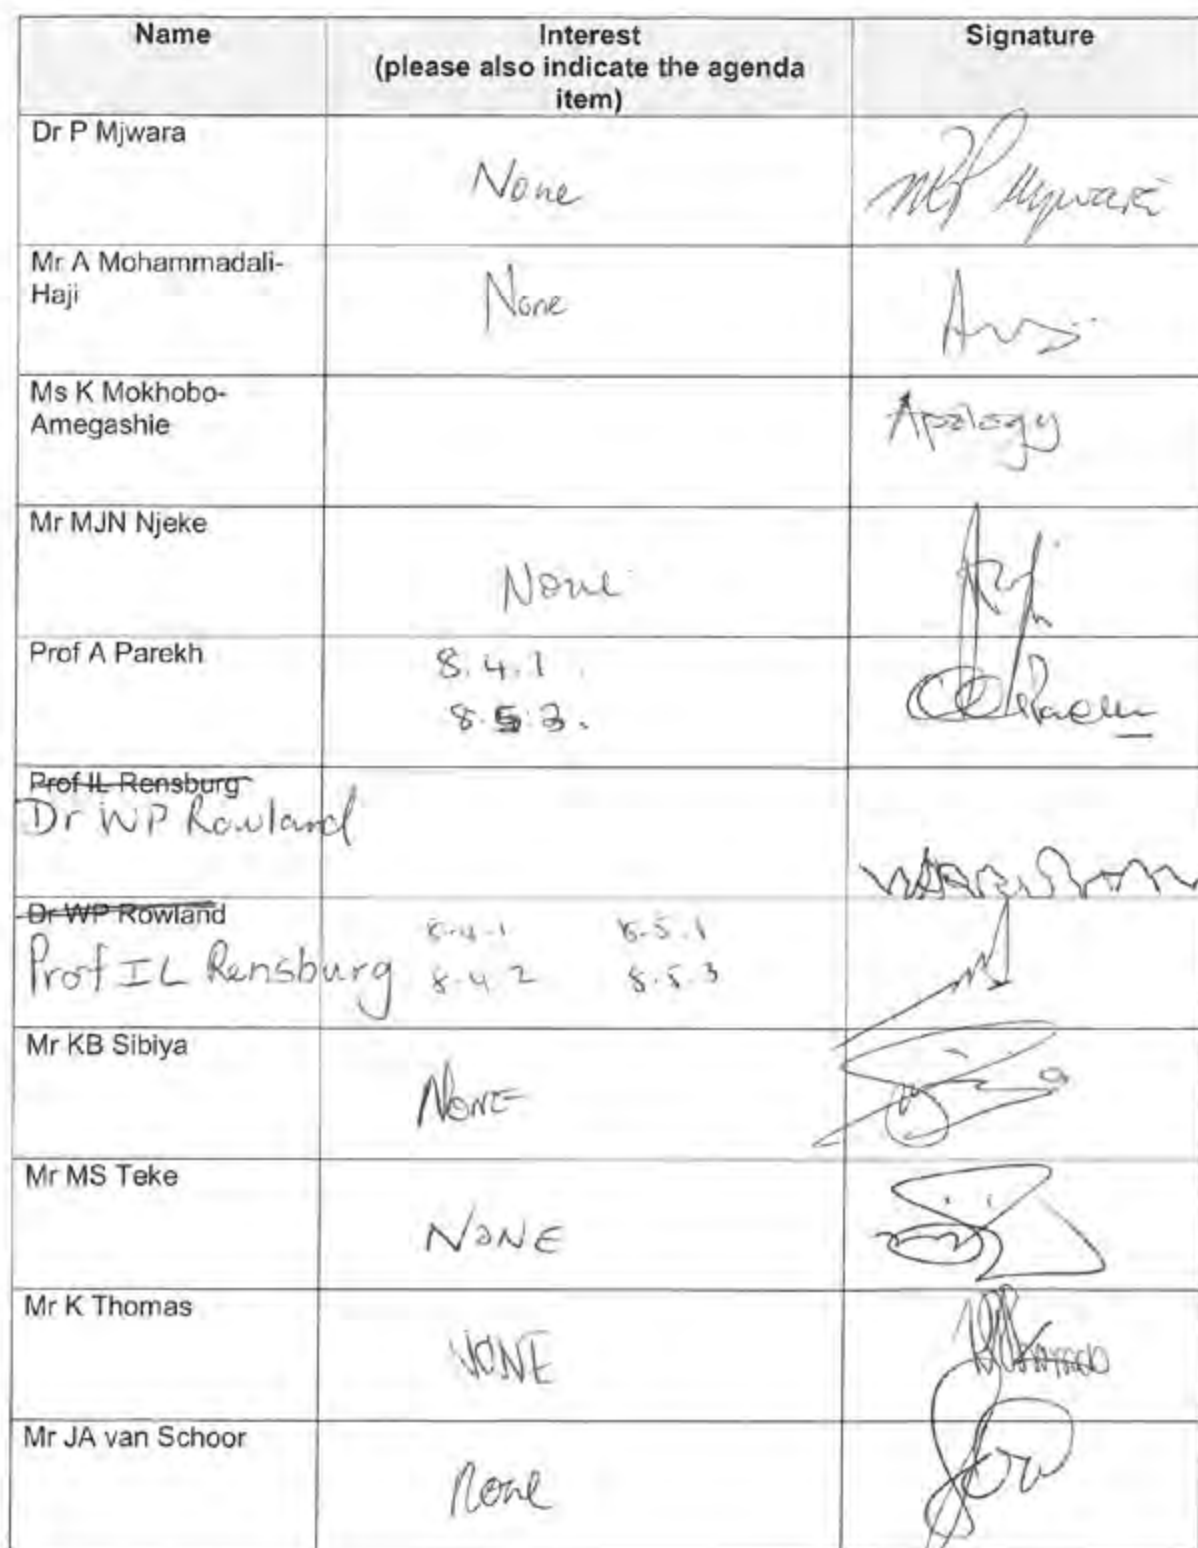 Name Interest Signature
(please also indicate the agenda
item)
Dr P Mjwara
None
Mr A Mohammadali-
Haji
None
Ms K Mokhobo-
Amegashie
Apology
Mr MJN Njeke
None
Prof A Parekh
8.4.1
8.5.3.
Prof IL Rensburg
Dr WP Rowland
Dr WP Rowland
Prof IL Rensburg
8.4.1 8.5.1
8.4.2 8.5.3
Mr KB Sibiya
NONE
Mr MS Teke
NONE
Mr K Thomas
NONE
Mr JA van Schoor
None